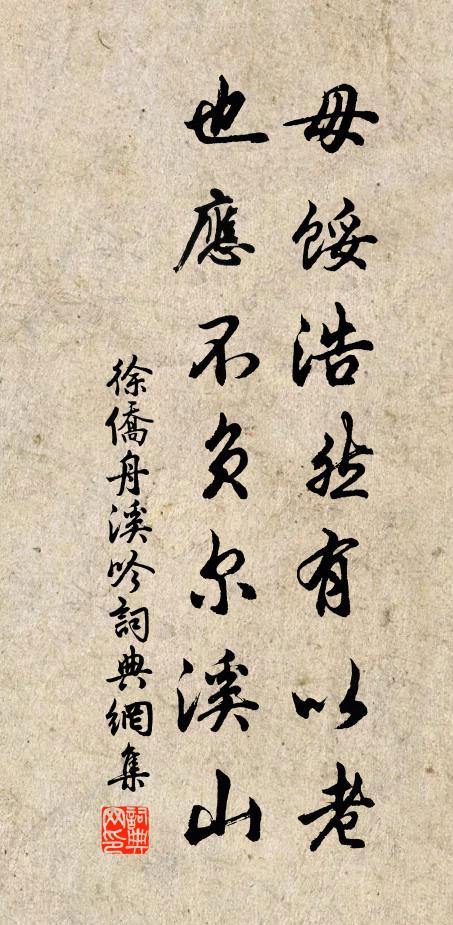 毋餒浩然有以老
也應不負尔溪山
徐僑舟溪吟詞典網集
詞典网印